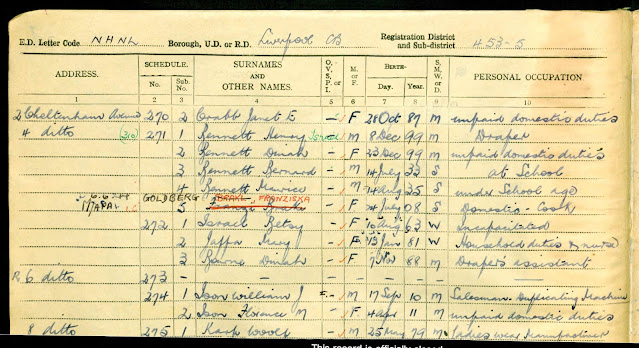 E.D. Letter Code NHNL Borough, U.D. or R.D. Liverpool CB Registration District and Sub-district 453-5
ADDRESS. SCHEDULE. SURNAMES AND OTHER NAMES. O, V, S, P, or I. M. or F. BIRTH— S. M. W. or D. PERSONAL OCCUPATION
No. Sub. No. Day. Year.
1 2 3 4 5 6 7 8 9 10
2 Cheltenham 270 2 Crabb Janet E — F 28 Oct 87 M unpaid domestic duties
4 ditto 310 271 1 Kennett Henry — M 8 Dec 99 M Draper
2 Kennett Dinah — F 23 Dec 99 M unpaid domestic duties
3 Kennett Bernard — M 14 July 33 S at School
4 Kennett Maurice — M 14 Aug 35 S under School age
GOLDBERG FRANZISKA
5 F 24 July 08 S Domestic Cook
272 1 Israel Betsy F 10 Aug 63 W Incapacitated
2 Jaffa Mary F 13 Jan 81 W Household duties & nurse
3 Dinah F 7 Nov 88 M Drapers assistant
R 6 ditto 273 — — — — —
274 1 Ison William J — M 17 Sep 10 M Salesman Duplicating Machine
2 Ison Florence M — F 4 Apr 11 M unpaid domestic duties
8 ditto 275 1 Karp Woolf — M 25 May 79 M Ladies wear Manufacturer
This record is officially closed